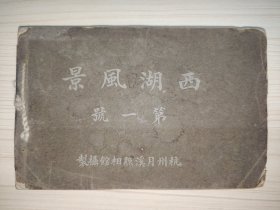 西湖風景
第一號
杭州月溪照相館攝製